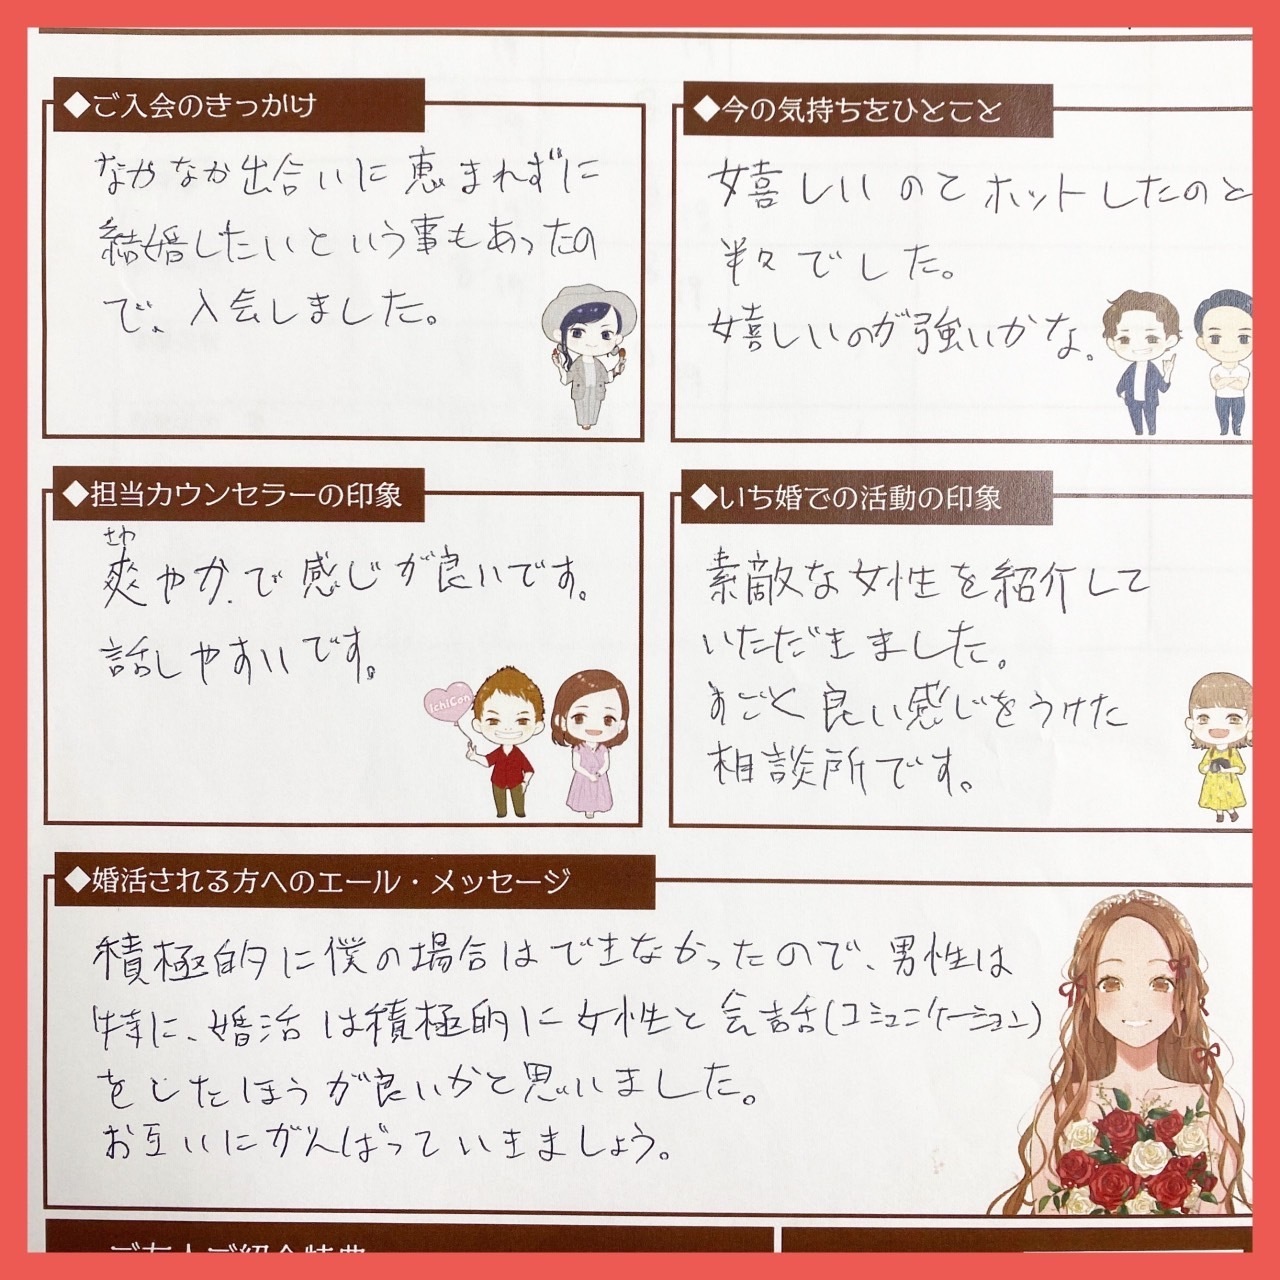 ◆ご入会のきっかけ
なかなか出合いに恵まれずに
結婚したいという事もあったの
で、入会しました。
◆今の気持ちをひとこと
嬉しいのとホットしたのと
半々でした。
嬉しいのが強いかな。
◆担当カウンセラーの印象
さわ
爽やかで感じが良いです。
話しやすいです。
IchiCon
◆いち婚での活動の印象
素敵な女性を紹介して
いただきました。
すごく良い感じをうけた
相談所です。
◆婚活される方へのエール・メッセージ
積極的に僕の場合はできなかったので、男性は
特に、婚活は積極的に女性と会話(コミュニケーション)
をしたほうが良いかと思いました。
お互いにがんばっていきましょう。